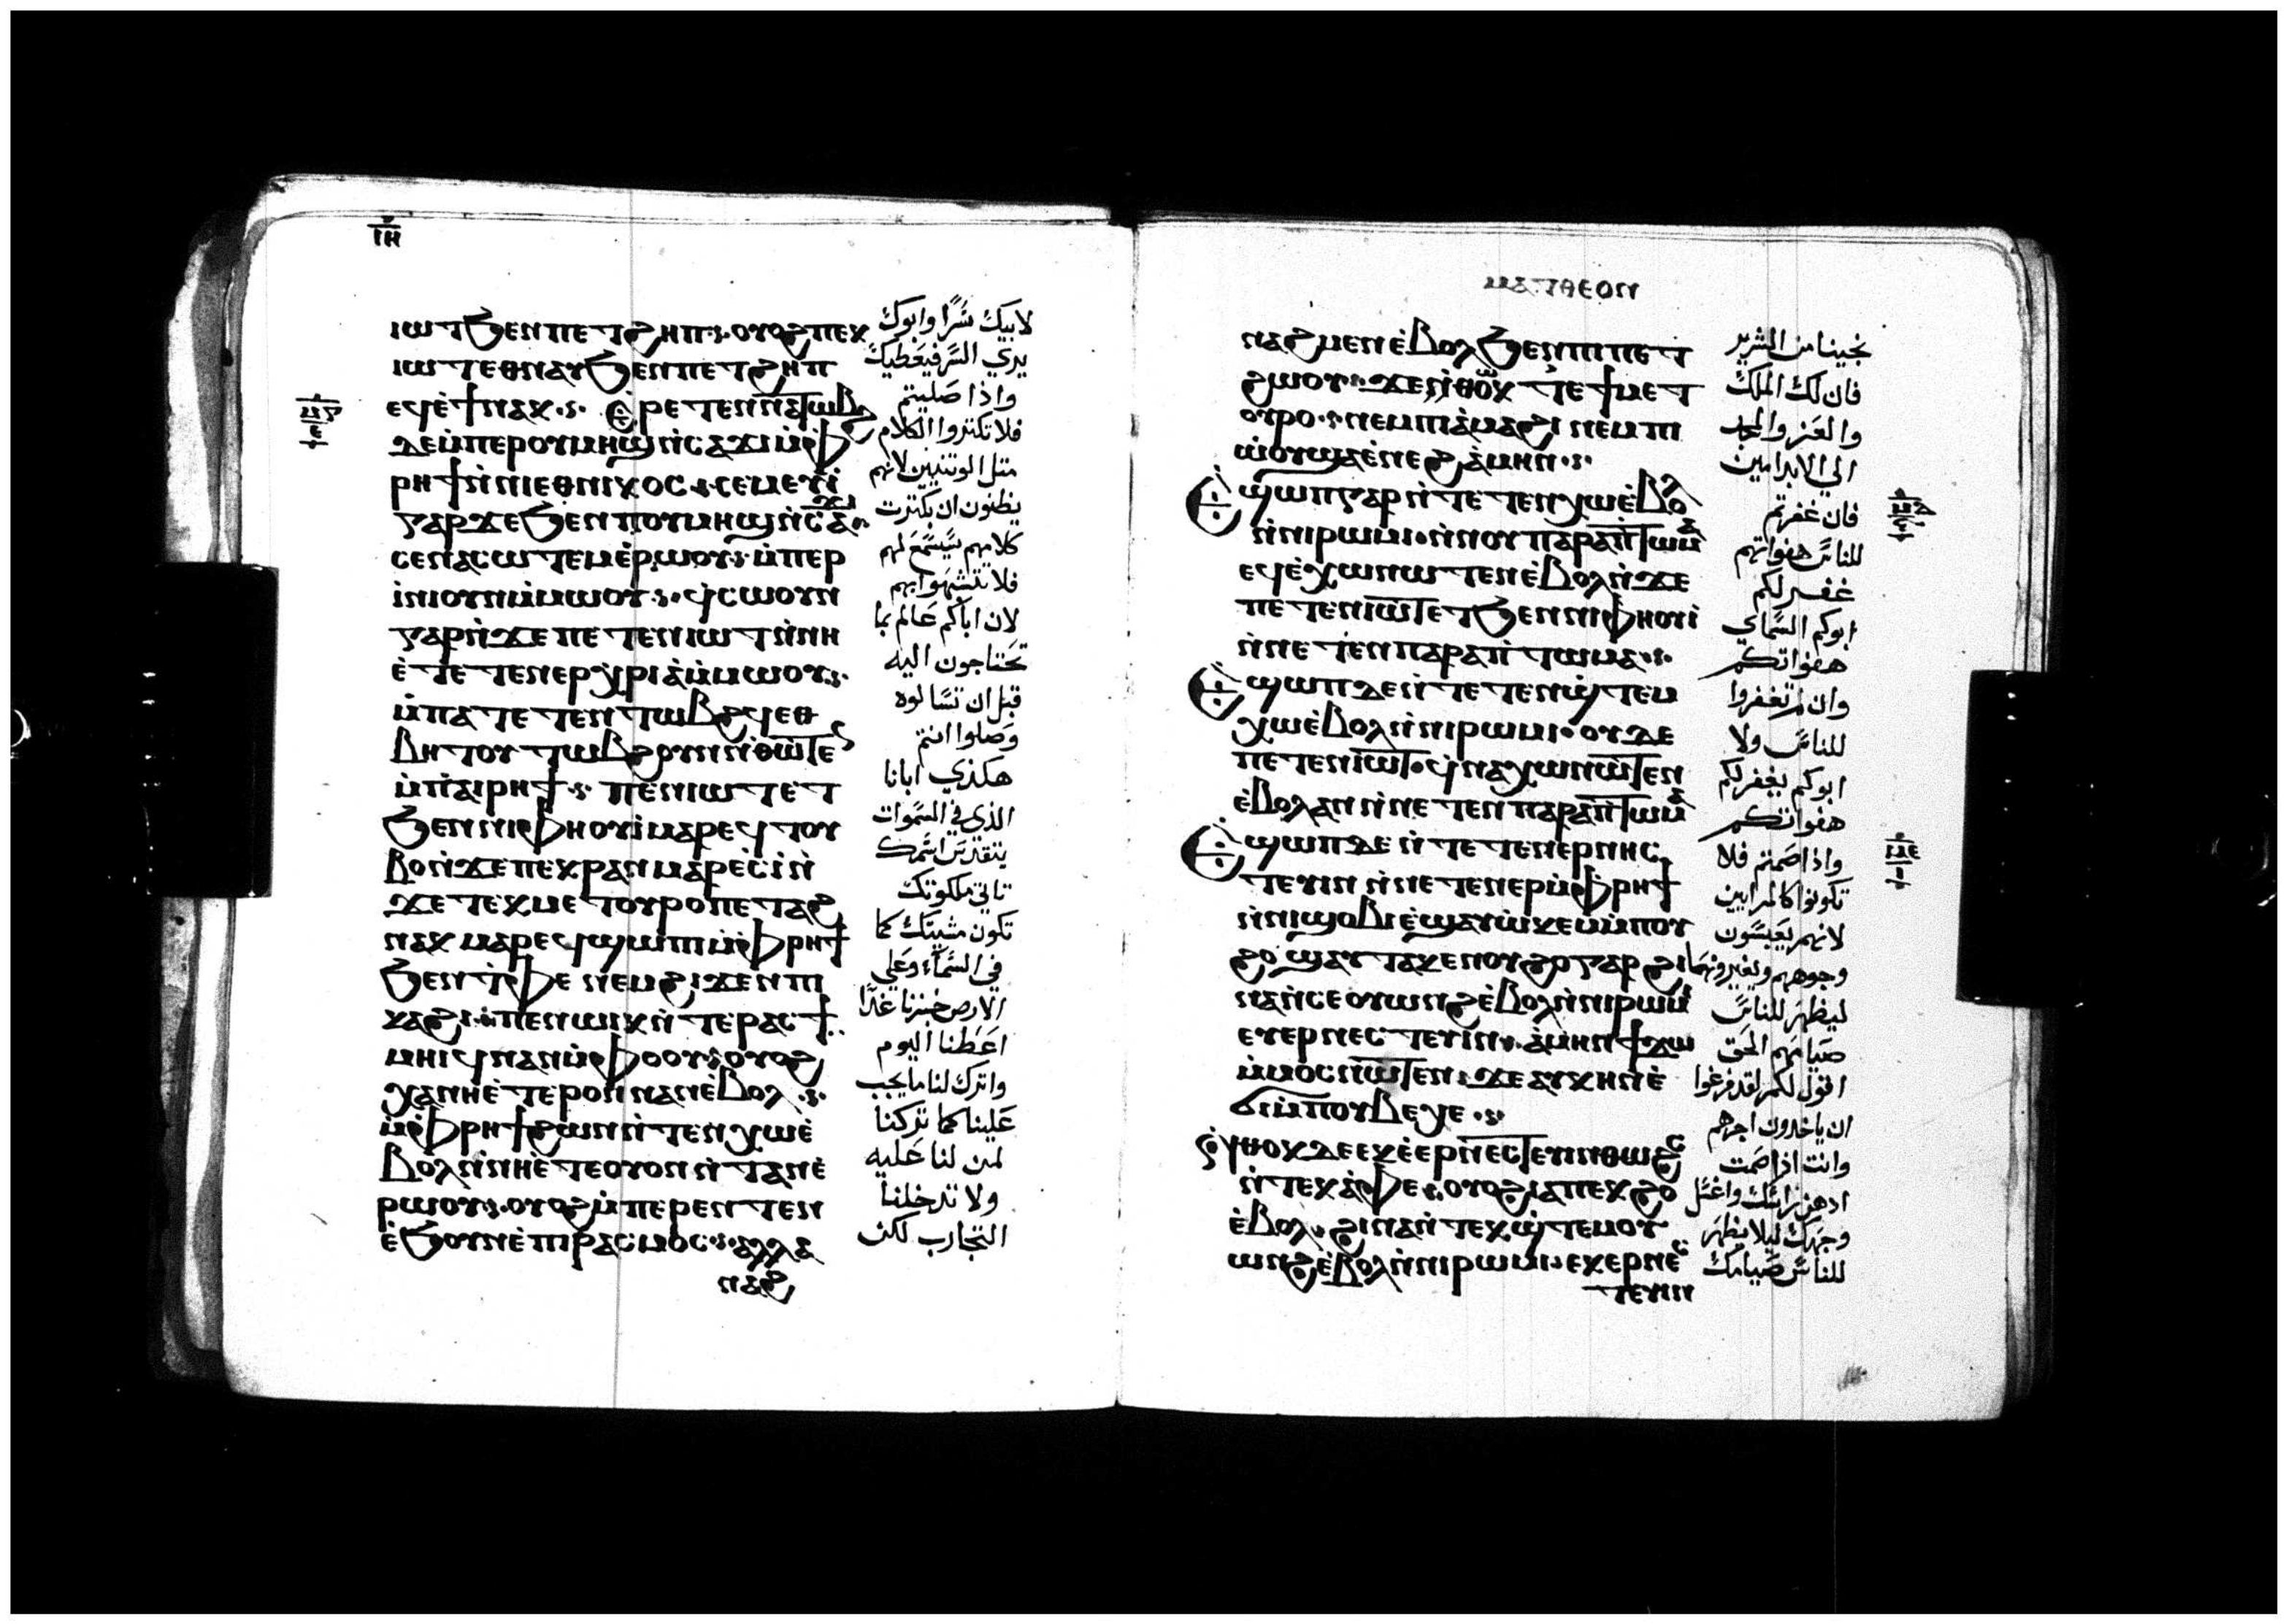 ⲓⲏ
ⲓⲱⲧϧⲉⲛⲡⲉⲧϩⲏⲡ·ⲟⲩⲟϩⲡⲉⲕ
ⲓⲱⲧⲉⲑⲛⲁⲩϧⲉⲛⲡⲉⲧϩⲏⲡ
ⲉϥⲉ̀ϯⲛⲁⲕ· ⲉⲣⲉⲧⲉⲛⲛⲁⲧⲱⲃϩ
ⲇⲉⲙ̀ⲡⲉⲣⲟⲩⲙⲏϣⲛ̀ⲥⲁϫⲓⲙ̀ⲫ
ⲣⲏϯⲛ̀ⲛⲓⲉⲑⲛⲓⲕⲟⲥ·ⲥⲉⲙⲉⲩⲓ̀
ⲅⲁⲣϫⲉϧⲉⲛⲡⲟⲩⲙⲏϣⲛ̀ⲥⲁϫⲓ
ⲥⲉⲛⲁⲥⲱⲧⲉⲙⲉ̀ⲣⲱⲟⲩ·ⲙ̀ⲡⲉⲣ
ⲓ̀ⲛⲓⲟⲩⲛⲙ̀ⲙⲱⲟⲩ·ϥⲥⲱⲟⲩⲛ
ⲅⲁⲣⲛ̀ϫⲉⲡⲉⲧⲉⲛⲓⲱⲧⲛ̀ⲛⲏ
ⲉ̀ⲧⲉⲧⲉⲛⲉⲣⲭⲣⲓⲁ̀ⲙ̀ⲙⲱⲟⲩ·
ⲙ̀ⲡⲁⲧⲉⲧⲉⲛⲧⲱⲃϩϥⲉⲑ
ⲃⲏⲧⲟⲩⲧⲱⲃϩⲟⲩⲛⲛ̀ⲑⲱⲧⲉⲛ
ⲙ̀ⲡⲁⲓⲣⲏϯ· ⲡⲉⲛⲓⲱⲧⲉ̀ⲧ
ϧⲉⲛⲛⲓⲫⲏⲟⲩⲓ̀ⲙⲁⲣⲉϥⲧⲟⲩ
ⲃⲟⲛ̀ϫⲉⲡⲉⲕⲣⲁⲛⲙⲁⲣⲉⲥⲓ̀ⲛ̀
ϫⲉⲧⲉⲕⲙⲉⲧⲟⲩⲣⲟⲡⲉⲧⲉϩ
ⲛⲁⲕⲙⲁⲣⲉϥϣⲱⲡⲓⲙ̀ⲫⲣⲏϯ
ϧⲉⲛⲧ̀ⲫⲉⲛⲉⲙϩⲓϫⲉⲛⲡⲓ
ⲕⲁϩⲓ·ⲡⲉⲛⲱⲓⲕⲛ̀ⲧⲉⲣⲁⲥϯ
ⲙⲏⲓϥⲛⲁⲛⲙ̀ⲫⲟⲟⲩ·ⲟⲩⲟϩ
ⲭⲁⲛⲏⲉ̀ⲧⲉⲣⲟⲛⲛⲁⲛⲉ̀ⲃⲟⲗ·
ⲙ̀ⲫⲣⲏϯϩⲱⲛⲛ̀ⲧⲉⲛⲭⲱⲉ̀
ⲃⲟⲗⲛ̀ⲛⲏⲉ̀ⲧⲉⲟⲩⲟⲛⲛ̀ⲧⲁⲛⲉ̀
ⲣⲱⲟⲩ·ⲟⲩⲟϩⲙ̀ⲡⲉⲣⲉⲛⲧⲉⲛ
ⲉ̀ϧⲟⲩⲛⲉ̀ⲡⲓⲣⲁⲥⲙⲟⲥ·ⲁⲗⲗⲁ
ⲛⲁϩ
لابيك سرًا وابوك
يري السر فيعطيك
واذا صليتم
فلا تكتروا الكلام
متل الوتنيين لانهم
يظنون ان بكترت
كلامهم يسمع لهم
فلا تتشبهوا بهم
لان اباكم عالم بما
تحتاجون اليه
قبل ان تسالوه
وصلوا انتم
هكذي ابانا
الذي في السموات
يتقدس اسمك
تاتي ملكوتك
تكون مشيتك كما
في السماء وعلي
الارض خبزنا غدًا
اعطنا اليوم
واترك لنا ما يجب
علينا كما تركنا
لمن لنا عليه
ولا تدخلنا
التجارب لكن
ⲙⲁⲧⲑⲉⲟⲛ
ⲛⲁϩⲙⲉⲛⲉ̀ⲃⲟⲗϧⲉⲛⲡⲓⲡⲉⲧ
ϩⲱⲟⲩ·ϫⲉⲛ̀ⲑⲟⲕⲧⲉϯⲙⲉⲧ
ⲟⲩⲣⲟ·ⲛⲉⲙⲡⲓⲁ̀ⲙⲁϩⲓⲛⲉⲙⲡⲓ
ⲱ̀ⲟⲩϣⲁⲉ̀ⲛⲉϩⲁ̀ⲙⲏⲛ·
Ⲉϣⲱⲡⲅⲁⲣⲛ̀ⲧⲉⲧⲉⲛⲭⲱⲉ̀ⲃⲟⲗ
ⲛ̀ⲛⲓⲣⲱⲙⲓ·ⲛ̀ⲛⲟⲩⲡⲁⲣⲁⲡⲧⲱⲙⲁ
ⲉϥⲉ̀ⲭⲱⲛⲱⲧⲉⲛⲉ̀ⲃⲟⲗⲛ̀ϫⲉ
ⲡⲉⲧⲉⲛⲓⲱⲧⲉⲧϧⲉⲛⲛⲓⲫⲏⲟⲩⲓ̀
ⲛ̀ⲛⲉⲧⲉⲛⲡⲁⲣⲁⲡⲧⲱⲙⲁ·
Ⲉϣⲱⲡⲇⲉⲛ̀ⲧⲉⲧⲉⲛϣ̀ⲧⲉⲙ
ⲭⲱⲉ̀ⲃⲟⲗⲛ̀ⲛⲓⲣⲱⲙⲓ·ⲟⲩⲇⲉ
ⲡⲉⲧⲉⲛⲓⲱⲧ·ϥⲛⲁⲭⲱⲛⲱⲧⲉⲛ
ⲉ̀ⲃⲟⲗⲁⲛⲛ̀ⲛⲉⲧⲉⲛⲡⲁⲣⲁⲡⲧⲱⲙⲁ
Ⲉϣⲱⲡⲇⲉⲛ̀ⲧⲉⲧⲉⲛⲉⲣⲛⲏⲥ
ⲧⲉⲩⲓⲛⲛ̀ⲛⲉⲧⲉⲛⲉⲣⲙ̀ⲫⲣⲏϯ
ⲛ̀ⲛⲓϣⲟⲃⲓⲉ̀ϣⲁⲩⲱ̀ⲕⲉⲙⲙ̀ⲡⲟⲩ
ϩⲟϣⲁⲩⲧⲁⲕⲉⲛⲟⲩϩⲟⲅⲁⲣϩⲓ
ⲛⲁⲛ̀ⲥⲉⲟⲩⲱⲛϩⲉ̀ⲃⲟⲗⲛ̀ⲛⲓⲣⲱⲙⲓ
ⲉⲩⲉⲣⲛⲉⲥⲧⲉⲩⲓⲛ·ⲁ̀ⲙⲏⲛϯϫⲱ
ⲙ̀ⲙⲟⲥⲛⲱⲧⲉⲛ·ϫⲉⲁⲩⲕⲏⲛⲉ̀
ϭⲓⲙ̀ⲡⲟⲩⲃⲉⲭⲉ·
ⲛ̀ⲑⲟⲕⲇⲉⲉⲕⲉ̀ⲉⲣⲛⲉⲥⲧⲉⲩⲓⲛⲑⲱϩⲥ
ⲛ̀ⲧⲉⲕⲁ̀ⲫⲉ·ⲟⲩⲟϩⲓⲁⲡⲉⲕϩⲟ
ⲉ̀ⲃⲟⲗ·ϩⲓⲛⲁⲛ̀ⲧⲉⲕϣ̀ⲧⲉⲙⲟⲩ
ⲱⲛϩⲉ̀ⲃⲟⲗⲛ̀ⲛⲓⲣⲱⲙⲓ·ⲉⲕⲉⲣⲛⲉⲥ
ⲧⲉⲩⲓⲛ
نجينا من الشرير
فان لك الملك
والعز والمجد
الي الابد امين
فان غفرتم
للناس هفواتهم
غفر لكم
ابوكم السماي
هفواتكم
وان لم تغفروا
للناس ولا
ابوكم يغفر لكم
هفواتكم
واذا صمتم فلا
تكونوا كالمرايين
لانهم يعبسون
وجوههم ويغيرونها
ليظهر للناس
صيامهم الحق
اقول لكم لقد فرغوا
ان ياخدوك اجرهم
وانت اذا صمت
ادهن راسك واغسل
وجهك ليلا يظهر
للناس صيامك